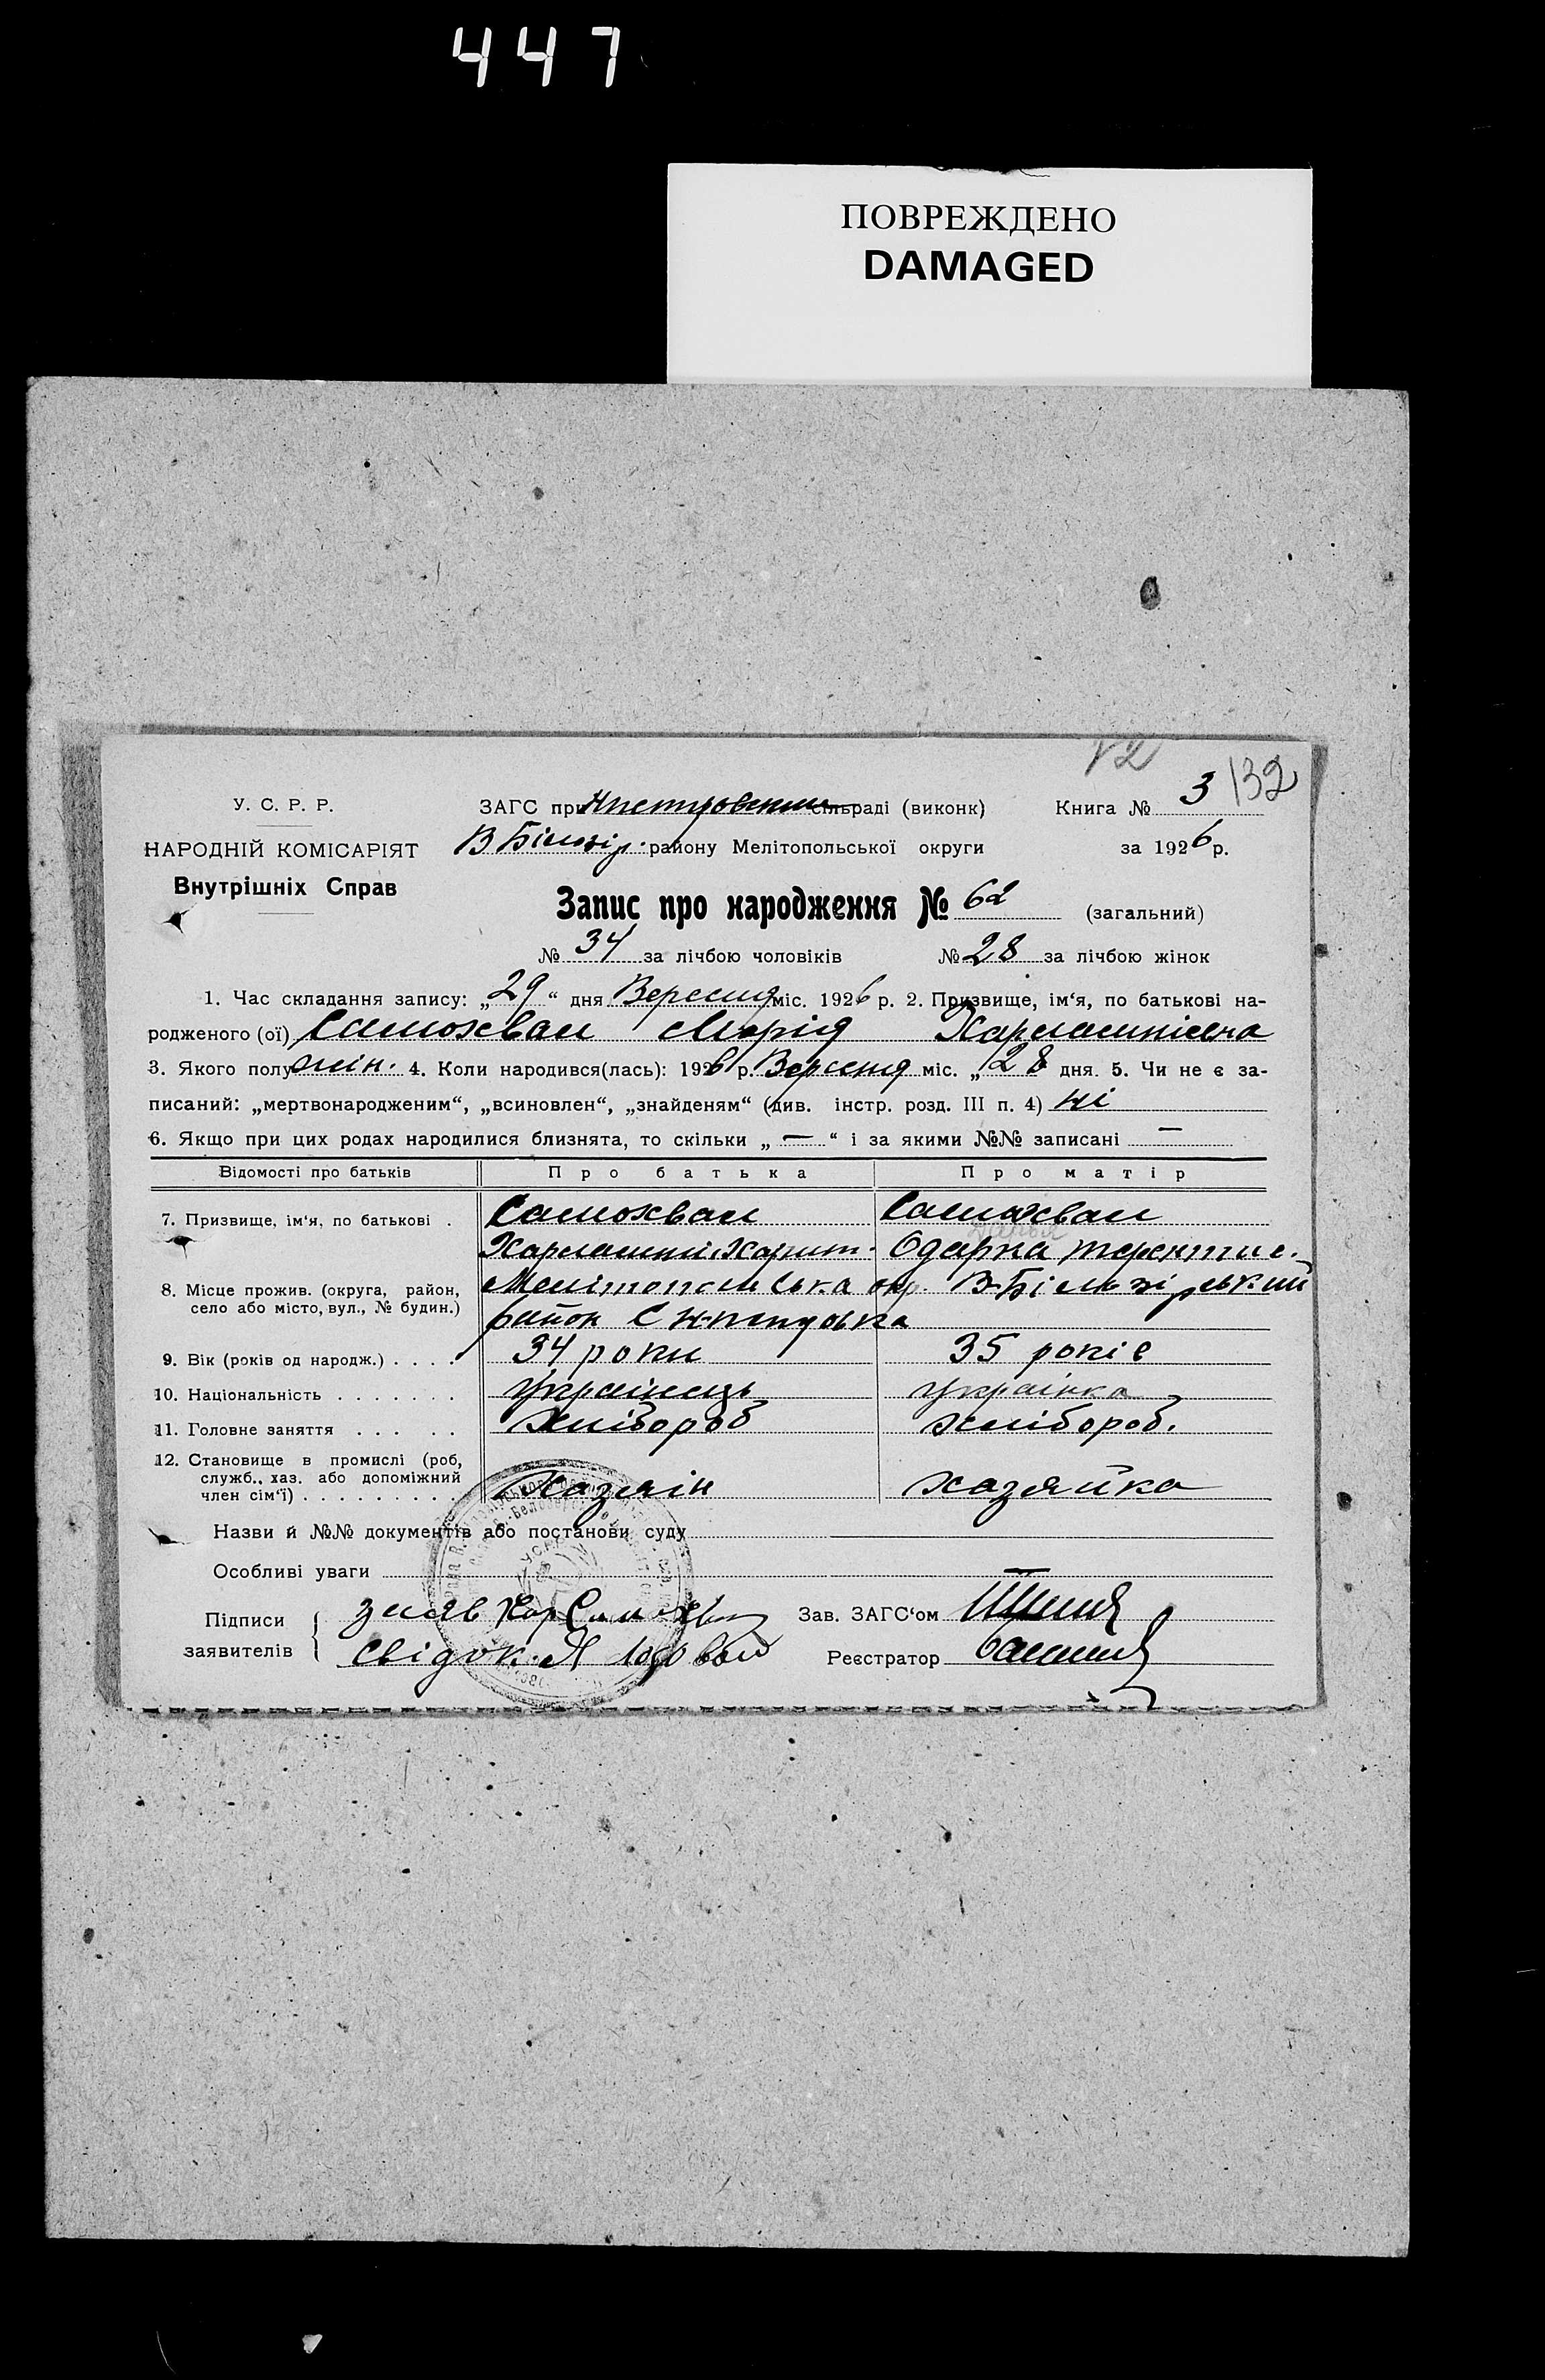 447
ПОВРЕЖДЕНО
DAMAGED
12
3 132
У. С. Р. Р.
ЗАГС при Нпетровский сільраді (виконк) Книга №
НАРОДНІЙ КОМІСАРІЯТ
В Білозір. району Мелітопольської округи за 1926 р.
Внутрішніх Справ
Запис про народження № 62 (загальний)
№ 34 за лічбою чоловіків № 28 за лічбою жінок
1. Час складання запису: „29“ дня Вересня міс. 1926 р. 2. Призвище, ім‘я, по батькові на-
родженого (ої) Самохвал Марія Харлампіївна
3. Якого полу жін. 4. Коли народився(лась): 1926 р. Вересня міс. „28 дня. 5. Чи не є за-
писаний: „мертвонародженим“, „всиновлен“, „знайденям“ (див. інстр. розд. III п. 4) ні
6. Якщо при цих родах народилися близнята, то скільки „ — “ і за якими №№ записані —
Відомості про батьків Про батька Про матір
7. Призвище, ім‘я, по батькові . Самохвал Самохвал
Харлампій Харит. Одарка терентие.
8. Місце прожив. (округа, район, Мелітопольська окр. В-Білозірський
село або місто, вул., № будин.) район С Н-петровка
9. Вік (років од народж.) . . . . 34 роки 35 років
10. Національність . . . . . . . Українець Українка
11. Головне заняття . . . . . Хлібороб хлібороб.
12. Становище в промислі (роб,
служб., хаз. або допоміжний
член сім‘ї) . . . . . . . . . Хазяїн хазяйка
Назви й №№ документів або постанови суду
Особливі уваги
УСРР
Підписи
заявителів
заяв Хар Самохвал
Зав. ЗАГС‘ом
свідок. Я
Реєстратор